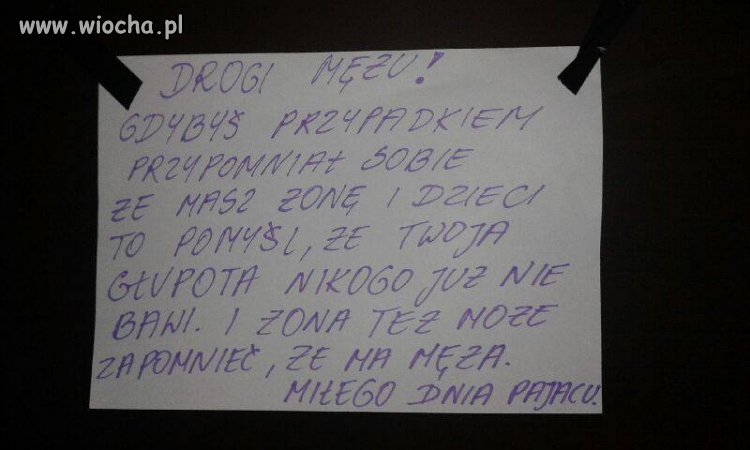 www.wiocha.pl
DROGI MĘZU!
GDYBYŚ PRZYPADKIEM
PRZYPOMNIAŁ SOBIE
ZE MASZ ZONĘ I DZIECI
TO POMYŚL, ZE TWOJA
GŁUPOTA NIKOGO JUZ NIE
BAWI. I ZONA TEZ MOZE
ZAPOMNIEĆ, ZE MA MĘZA.
MIŁEGO DNIA PAJACU.